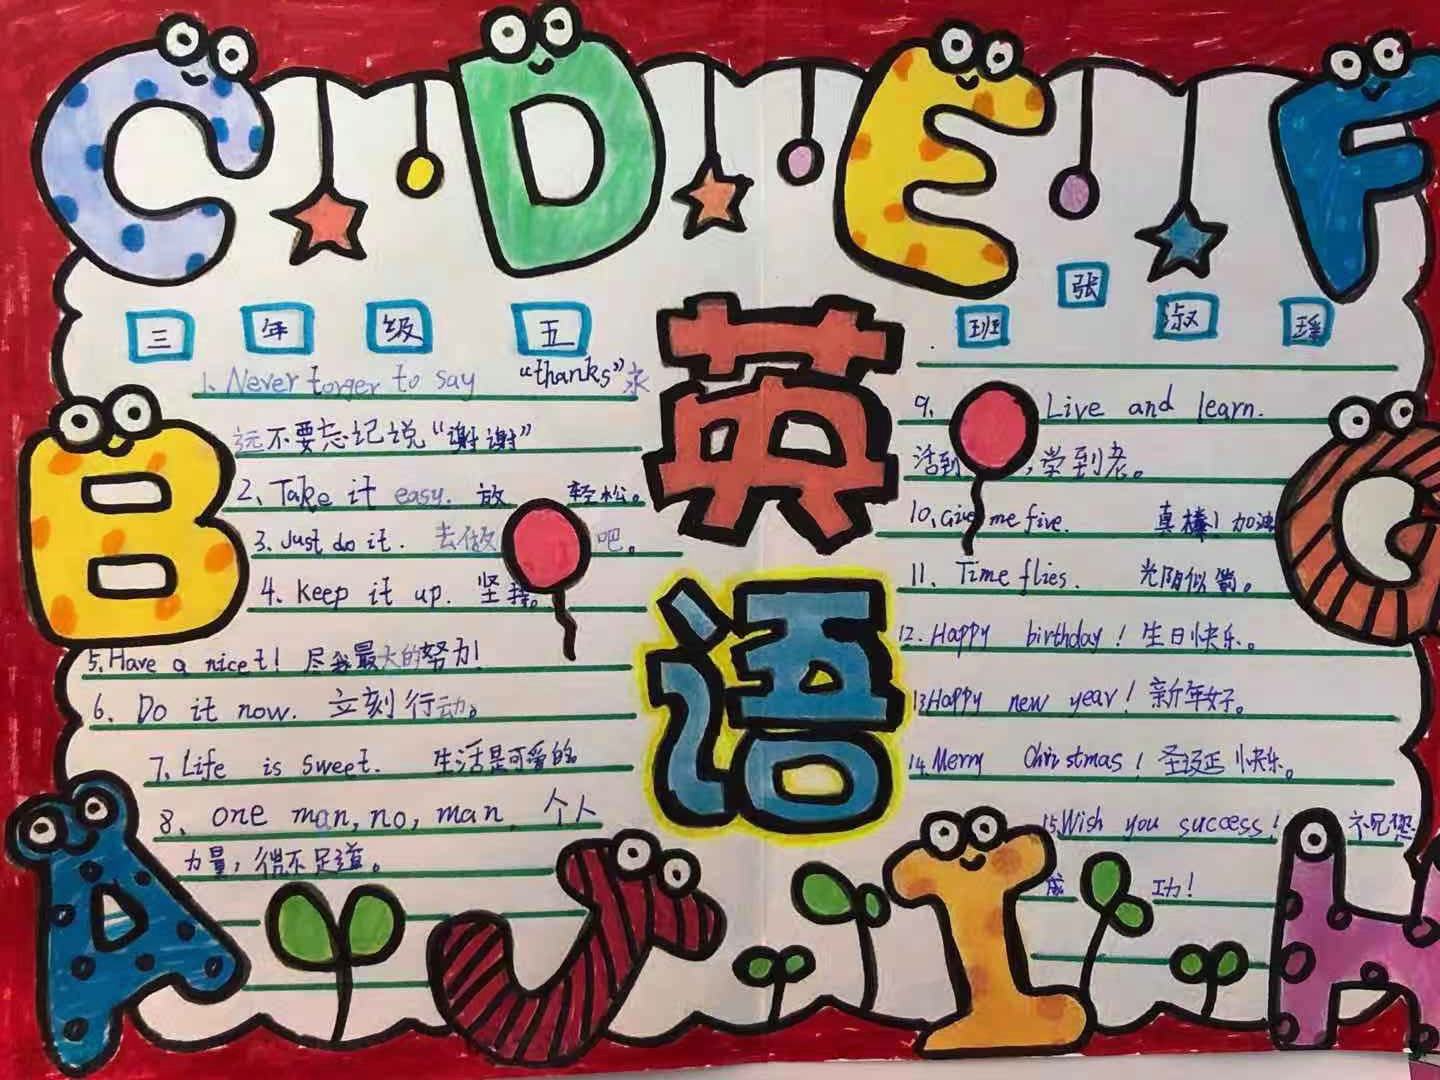 C D E F
三 年 级 五 班 张 淑 瑶
B
英
语
G
1. Never torger to say "thanks"永
远不要忘记说"谢谢"
2、Take it easy. 放 轻松。
3、Just do it. 去做 吧。
4、Keep it up. 坚持。
5、Have a nicet! 尽我最大的努力!
6、Do it now. 立刻行动。
7、Life is sweet. 生活是可爱的
8、one man, no, man. 个人
力量,微不足道。
9、 Live and learn.
活到 ,学到老。
10、Give me five. 真棒!加油
11、Time flies. 光阴似箭。
12. Happy birthday! 生日快乐。
13.Happy new year! 新年好。
14.Merry Christmas! 圣诞 快乐。
15.Wish you success!
成 功!
A J I H